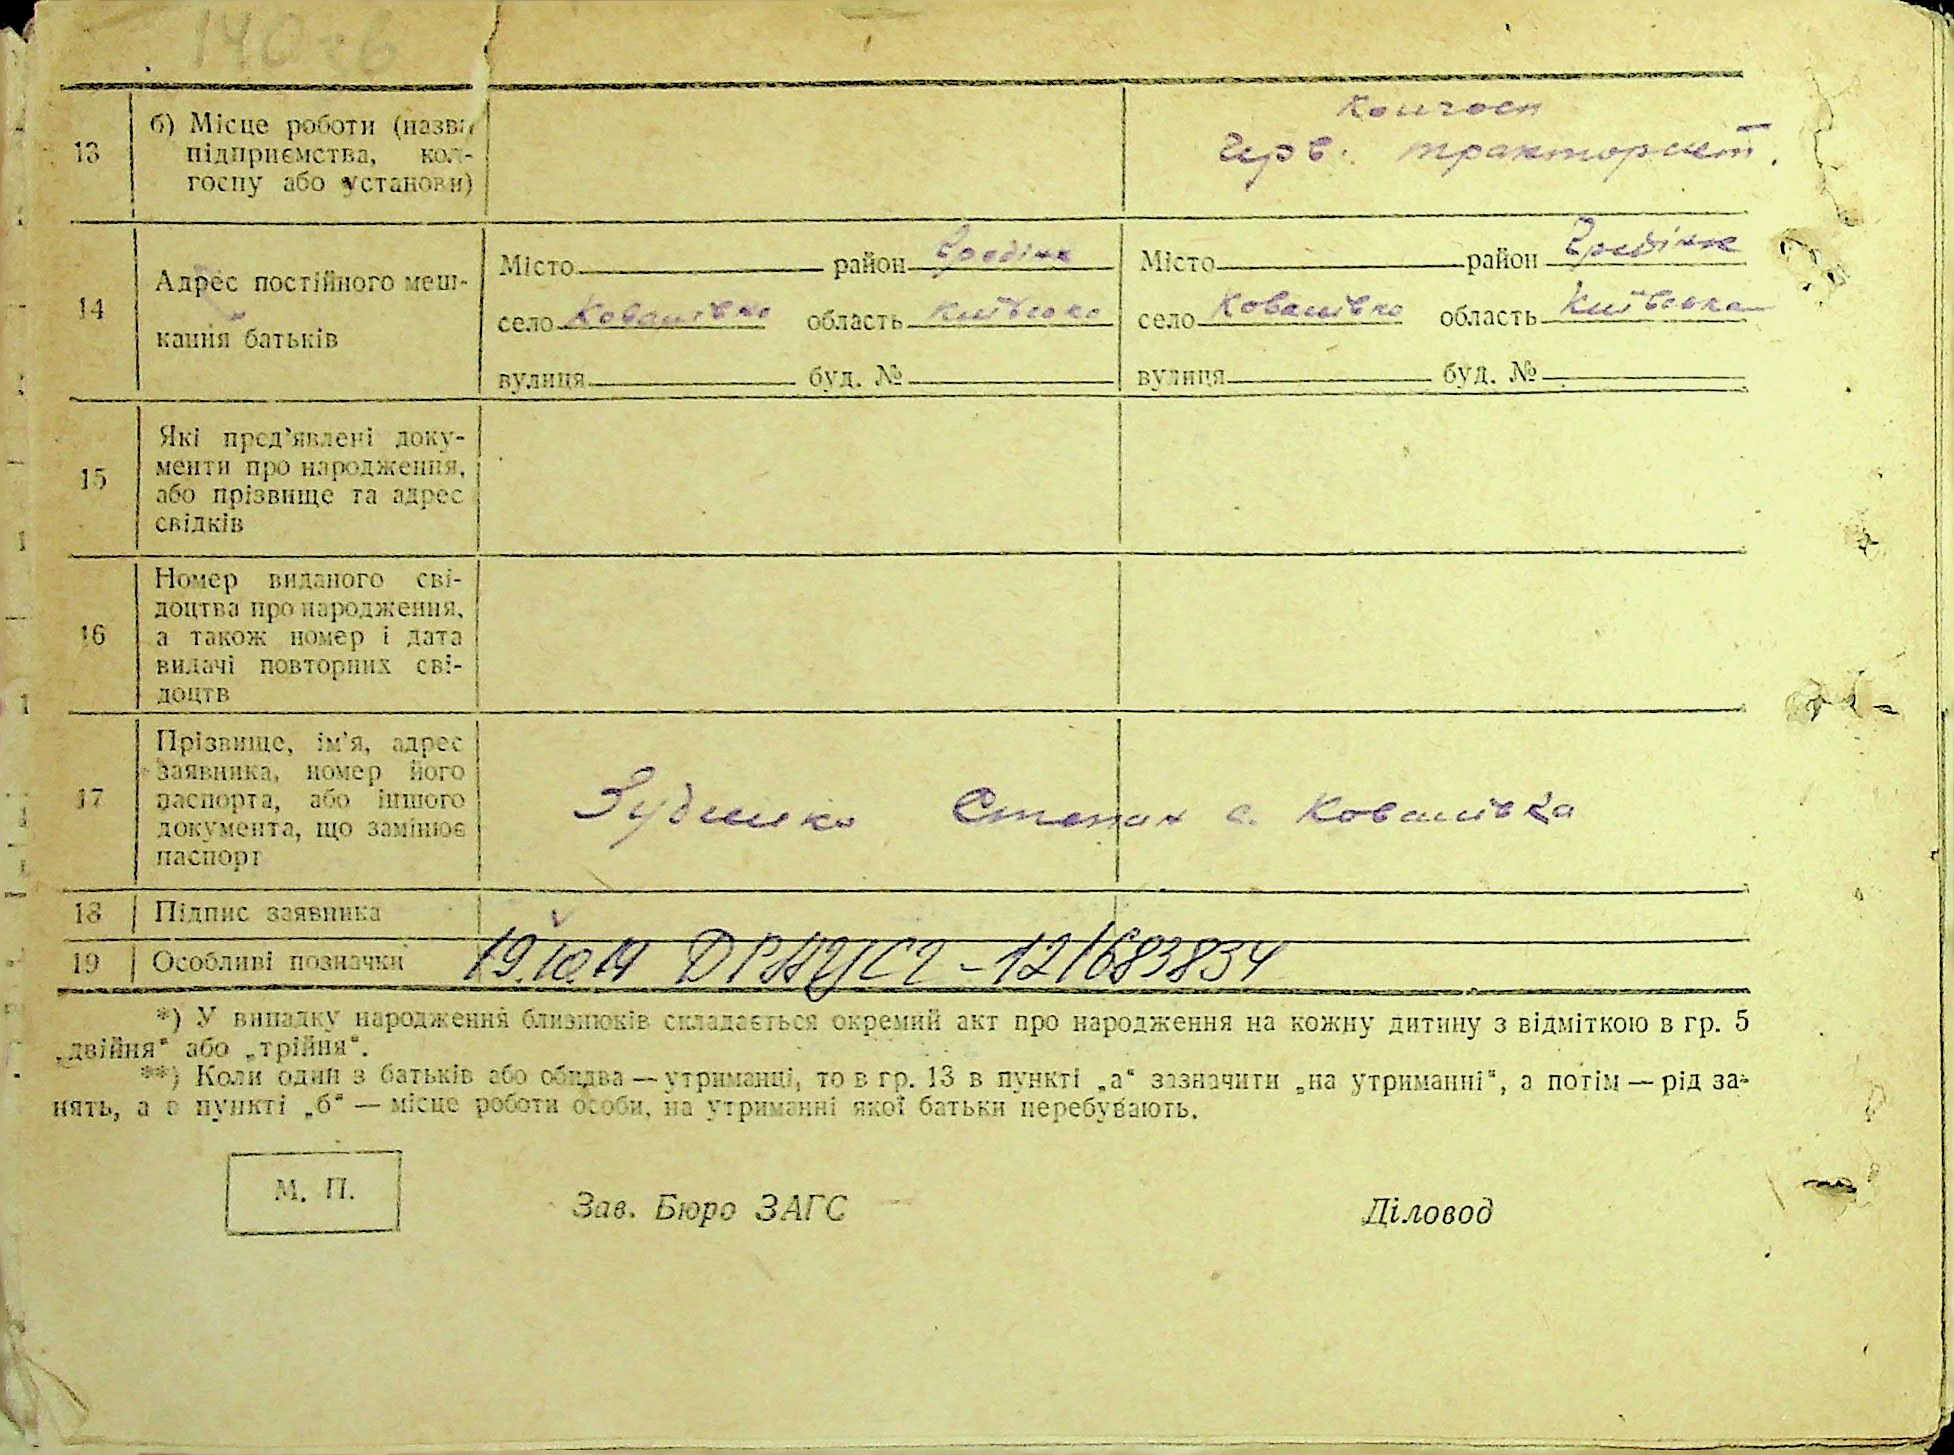 140 зв
13 б) Місце роботи (назва підприємства, кол-
госпу або установи)
Колгосп
Черв. тракторист.
14 Адрес постійного меш-
кання батьків
Місто район Гребінк Місто район Гребінк
село Ковалівка область Київська село Ковалівка область Київська
вулиця буд. № вулиця буд. №
15 Які пред'явлені доку-
менти про народження,
або прізвище та адрес
свідків
16 Номер виданого сві-
доцтва про народження,
а також номер і дата
видачі повторних сві-
доцтв
17 Прізвище, ім'я, адрес
заявника, номер його
паспорта, або іншого
документа, що замінює
паспорт
Степан с. Ковалівка
18 Підпис заявника
19 Особливі позначки
*) У випадку народження близнюків складається окремий акт про народження на кожну дитину з відміткою в гр. 5
„двійня" або „трійня".
**) Коли один з батьків або обидва — утриманці, то в гр. 13 в пункті „а" зазначити „на утриманні", а потім — рід за-
нять, а в пункті „б" — місце роботи особи, на утриманні якої батьки перебувають.
М. П.
Зав. Бюро ЗАГС Діловод